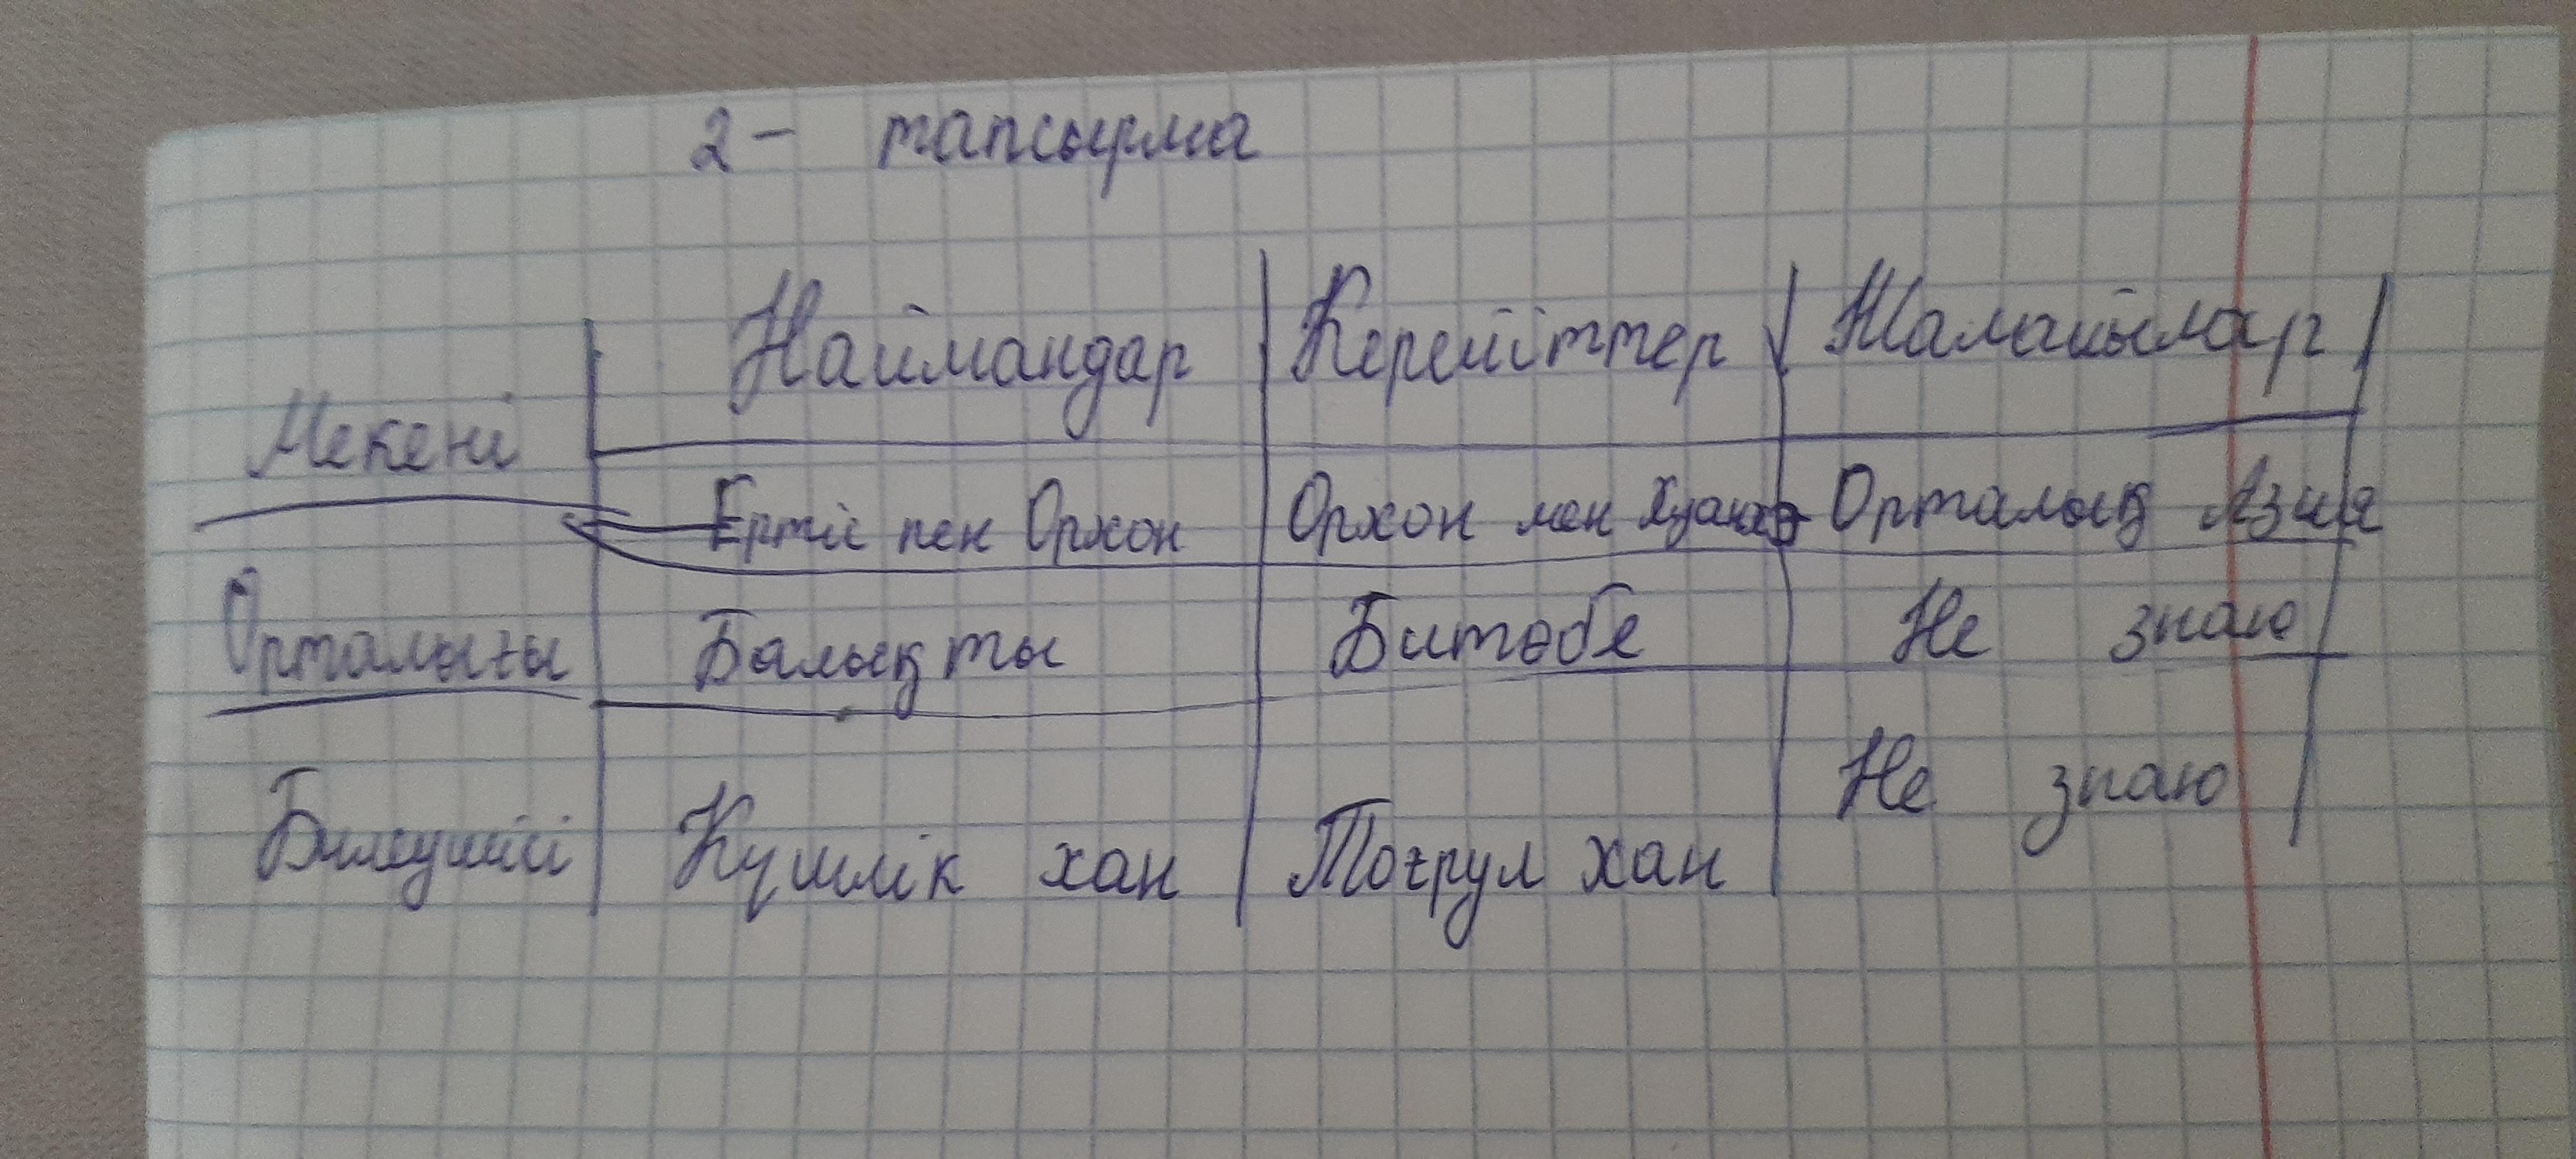 2 - тапсырма
Наймандар Керейіттер Жалайылар
Мекені
Ертіс пен Орхон Орхон мен Хуанхэ Орталық Азия
Орталығы Балықты Битөбе Не знаю
Билеушісі Күшлік хан Тоғрул хан Не знаю